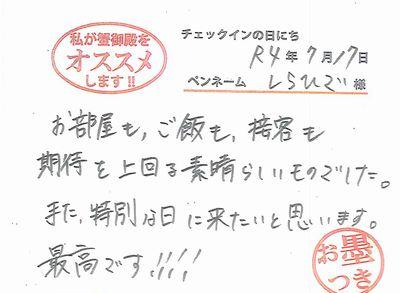 私が蟹御殿を
オススメ
します!!
チェックインの日にち
R4年7月17日
ペンネーム しらひで 様
お部屋も,ご飯も,接客も
期待を上回る素晴らしいものでした。
また,特別な日に来たいと思います。
最高です!!!!
お墨つき